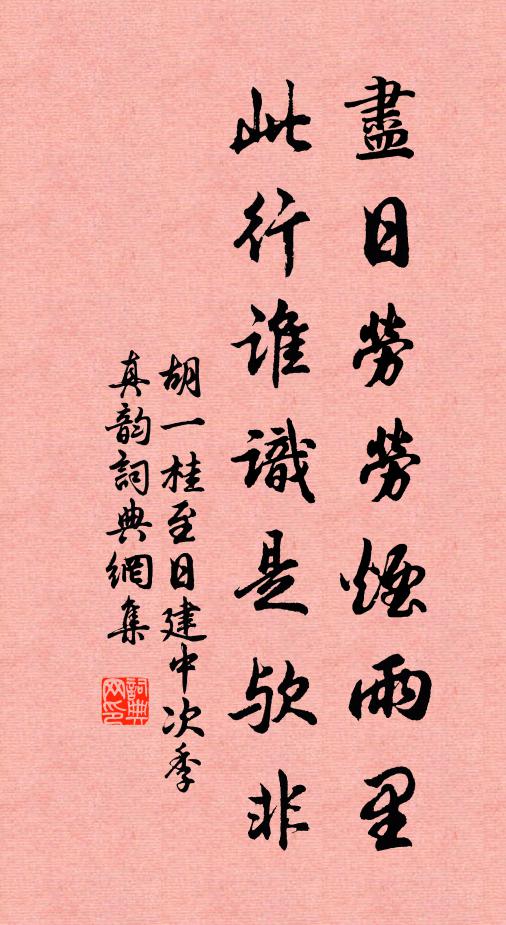 盡日勞勞煙雨里
此行誰識是欤非
胡一桂至日建中次季
真韵詞典網集
詞典网印